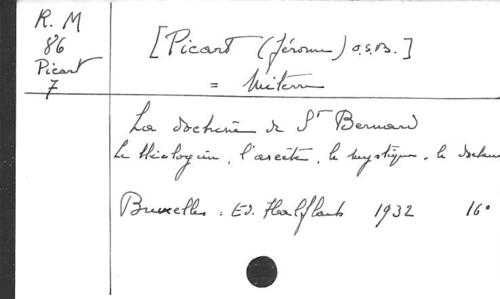 R. M
86
Picart
7
[Picart (Jérome) o.s.b.]
= Miterre
La doctrine de St Bernard
Le théologien, l'ascète, le mystique, le docteur
Bruxelles : Ed. 1932 16°